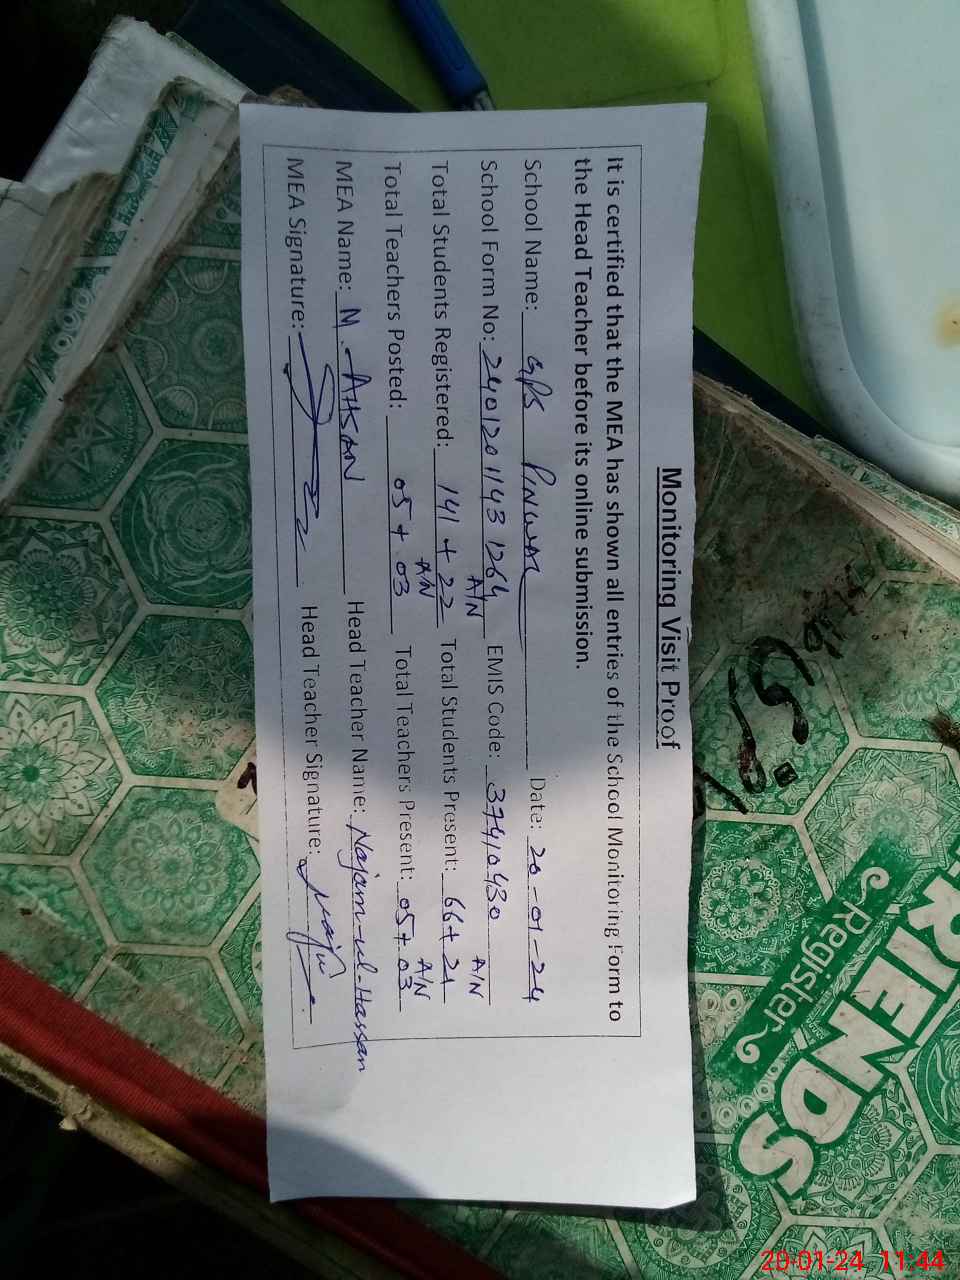 Monitoring Visit Proof
It is certified that the MEA has shown all entries of the School Monitoring Form to
the Head Teacher before its online submission.
School Name: GPS Pinwal Date: 20-01-24
School Form No: 2401201143 1264 EMIS Code: 37410430
A/N A/N
Total Students Registered: 141 + 22 Total Students Present: 66 + 21
A/N A/N
Total Teachers Posted: 05 + 03 Total Teachers Present: 05 + 03
MEA Name: M. AHSAN Head Teacher Name: Najam-ul-Hassan
MEA Signature: Head Teacher Signature:
RIENDS
Register
20-01-24 11:44